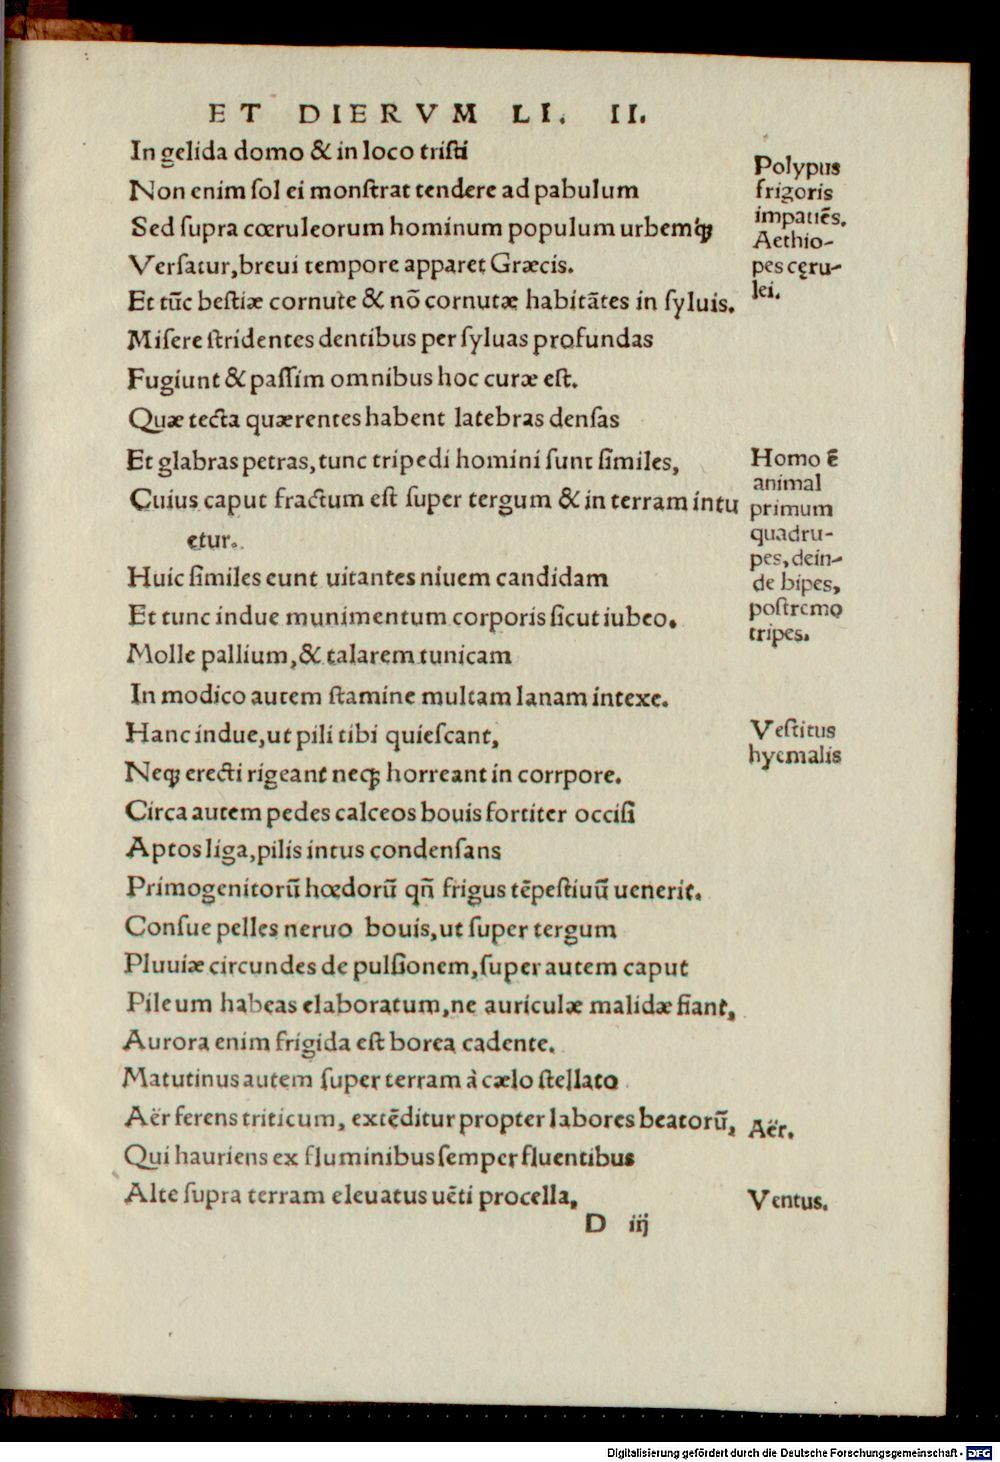 ET DIERVM LI. II.
In gelida domo & in loco tristi
Non enim sol ei monstrat tendere ad pabulum
Sed supra cœruleorum hominum populum urbemq́ꝫ
Versatur, breui tempore apparet Græcis.
Et tūc bestiæ cornute & nō cornutæ habitātes in syluis.
Misere stridentes dentibus per syluas profundas
Fugiunt & passim omnibus hoc curæ est.
Quæ tecta quærentes habent latebras densas
Et glabras petras, tunc tripedi homini sunt similes,
Cuius caput fractum est super tergum & in terram intu
etur.
Huic similes eunt uitantes niuem candidam
Et tunc indue munimentum corporis sicut iubeo.
Molle pallium, & talarem tunicam
In modico autem stamine multam lanam intexe.
Hanc indue, ut pili tibi quiescant,
Neqꝫ erecti rigeant neqꝫ horreant in corrpore.
Circa autem pedes calceos bouis fortiter occisi
Aptos liga, pilis intus condensans
Primogenitorū hœdorū qñ frigus tēpestiuū uenerit.
Consue pelles neruo bouis, ut super tergum
Pluuiæ circundes de pulsionem, super autem caput
Pileum habeas elaboratum, ne auriculæ malidæ fiant,
Aurora enim frigida est borea cadente.
Matutinus autem super terram à cælo stellato
Aër ferens triticum, extēditur propter labores beatorū,
Qui hauriens ex fluminibus semper fluentibus
Alte supra terram eleuatus uēti procella,
D iij
Polypus
frigoris
impatiēs.
Aethio-
pes cęru-
lei.
Homo ē
animal
primum
quadru-
pes, dein-
de bipes,
postremo
tripes.
Vestitus
hyemalis
Aër.
Ventus.
Digitalisierung gefördert durch die Deutsche Forschungsgemeinschaft - DFG